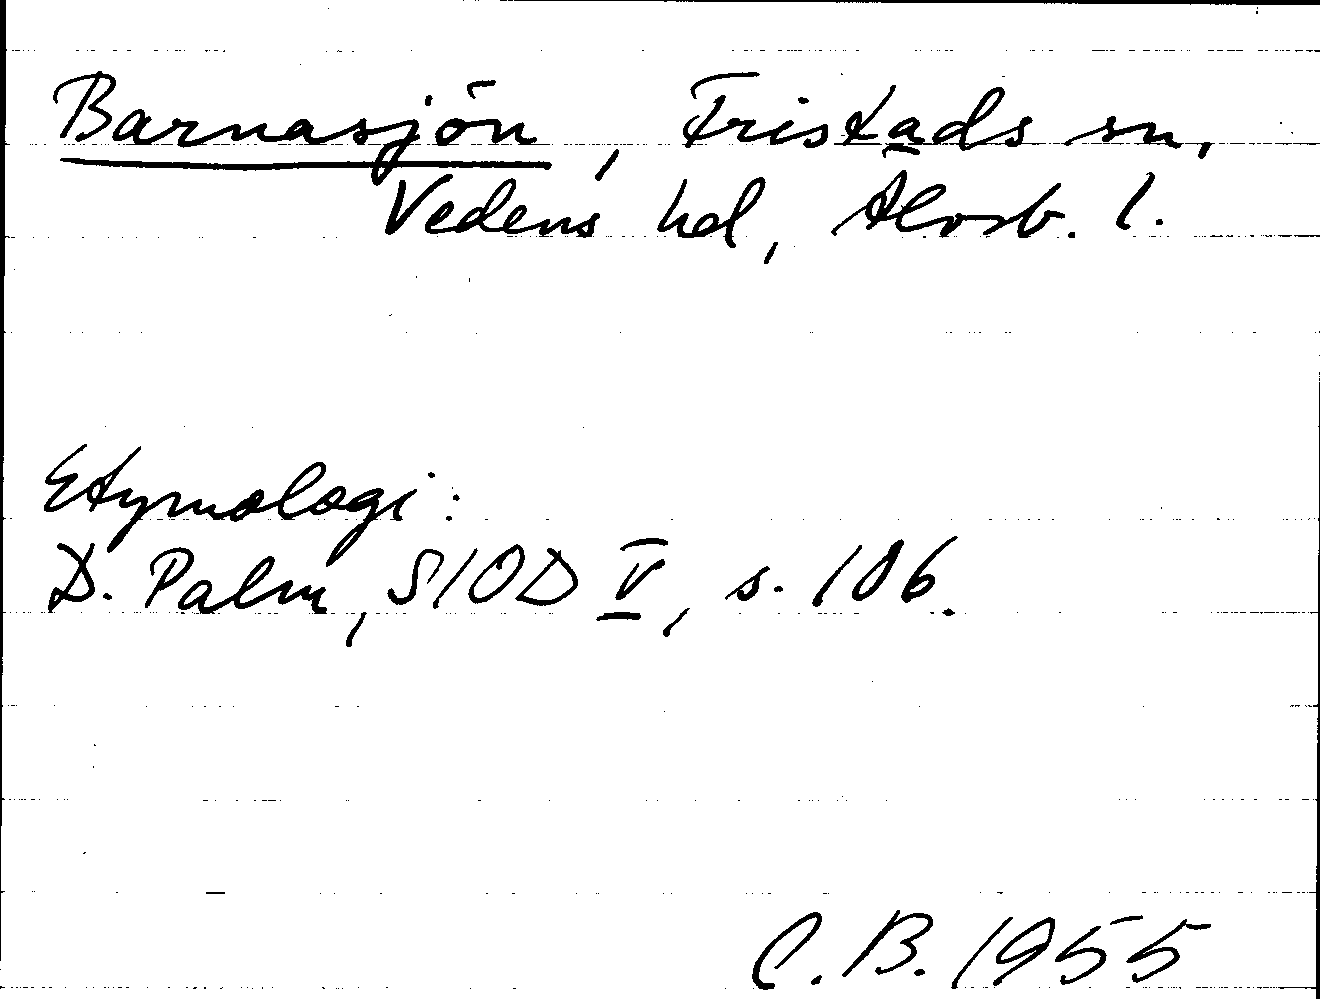 Barnasjön, Fristads sn,
Vedens hd, Älvsb. l.
Etymologi:
D. Palm, SIOD V, s. 106.
C. B. 1955